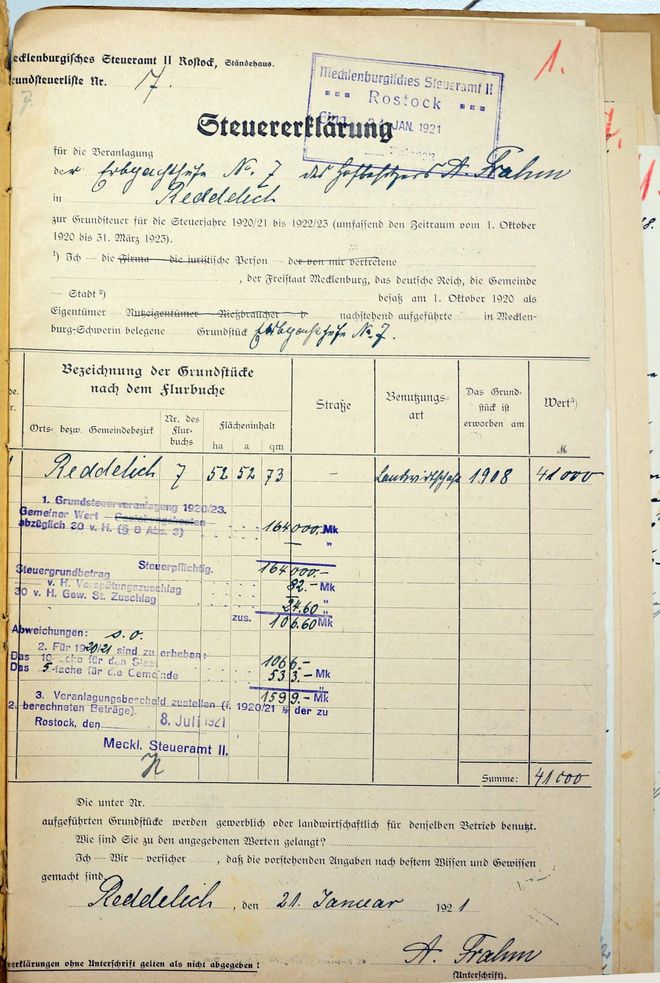 1.
ecklenburgisches Steueramt II Rostock, Ständehaus.
rundsteuerliste Nr. 7.
7.
Mecklenburgisches Steueramt II
Rostock
Eing. 24. JAN. 1921
Steuererklärung
für die Veranlagung
der Erbpachthufe No. 7 des Hofbesitzers A. Frahm
in Reddelich
zur Grundsteuer für die Steuerjahre 1920/21 bis 1922/23 (umfassend den Zeitraum vom 1. Oktober
1920 bis 31. März 1923).
¹) Ich — die Firma — die juristische Person — der von mir vertretene
, der Freistaat Mecklenburg, das deutsche Reich, die Gemeinde
— Stadt ²) besaß am 1. Oktober 1920 als
Eigentümer — Nutzeigentümer — Nießbraucher nachstehend aufgeführte in Mecklen-
burg-Schwerin belegene Grundstück Erbpachthufe No. 7.
Bezeichnung der Grundstücke
nach dem Flurbuche
Straße
Benutzungs-
art
Das Grund-
stück ist
erworben am
Wert ³)
Orts- bezw. Gemeindebezirk
Nr. des
Flur-
buchs
Flächeninhalt
ha a qm
M
Reddelich 7 52 52 73 — Landwirtschaft 1908 41000
1. Grundsteuerveranlagung 1920/23.
Gemeiner Wert —
abzüglich 30 v. H. (§ 8 Abs. 3) 164000.— Mk
— "
Steuerpflichtig. 164000.—
Steuergrundbetrag 82.— Mk
v. H. Verspätungszuschlag — "
30 v. H. Gew. St. Zuschlag 24.60 "
zus. 106.60 Mk
Abweichungen: s. o.
2. Für 1920/21 sind zu erheben:
Das 10 fache für den Staat 1066.—
Das 5 fache für die Gemeinde 533.— Mk
1599.— Mk
3. Veranlagungsbescheid zustellen (f. 1920/21 ½ der zu
2. berechneten Beträge).
Rostock, den 8. Juli 1921
Meckl. Steueramt II.
Summe: 41000
Die unter Nr.
aufgeführten Grundstücke werden gewerblich oder landwirtschaftlich für denselben Betrieb benutzt.
Wie sind Sie zu den angegebenen Werten gelangt?
Ich — Wir — versicher , daß die vorstehenden Angaben nach bestem Wissen und Gewissen
gemacht sind
Reddelich, den 21. Januar 1921
A. Frahm
(Unterschrift).
ererklärungen ohne Unterschrift gelten als nicht abgegeben!